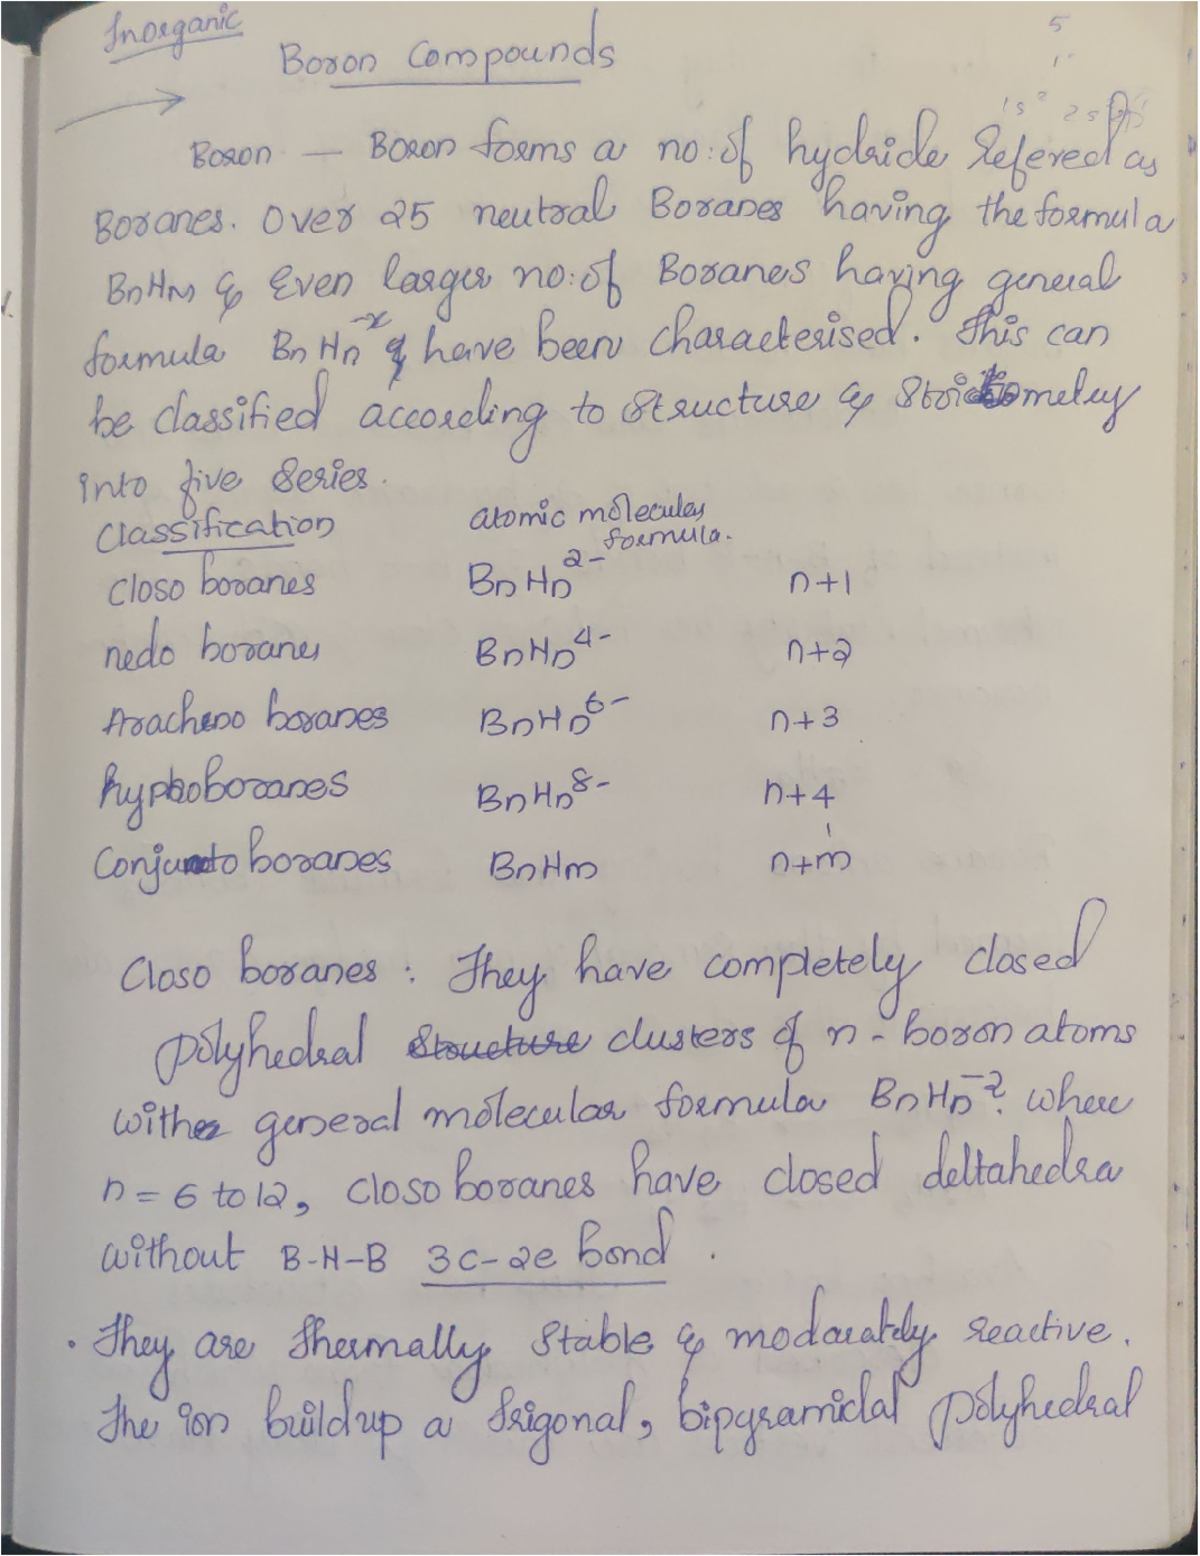 Inorganic
Boron Compounds
5
1s² 2s²
Boron — Boron forms a no:of hydride refered as
Boranes. Over 25 neutral Boranes having the formula
BnHm & Even larger no:of Boranes having general
formula BnHn⁻ˣ have been characterised. This can
be classified according to structure & Stoictometry
into five Series.
Classification atomic molecules formula.
Closo boranes BnHn²⁻ n+1
nedo boranes BnHn⁴⁻ n+2
Aracheno boranes BnHn⁶⁻ n+3
hyphoboranes BnHn⁸⁻ n+4
Conjuncto boranes BnHm n+m
Closo boranes : They have completely closed
polyhedral structure clusters of n - boron atoms
with general molecular formula BnHn⁻². where
n = 6 to 12, closo boranes have closed deltahedra
without B-H-B 3c-2e bond .
• They are thermally stable & moderately reactive.
The ion buildup a trigonal, bipyramidal polyhedral